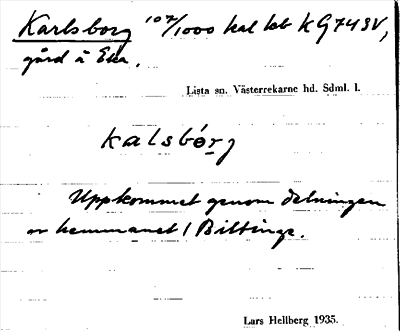 Karlsborg 107/1000 kal kb K G 74 SV,
gård å Eka.
Lista sn. Västerrekarne hd. Sdml. l.
kalsbórg
Uppkommet genom delningen
av hemmanet 1 Biltinge.
Lars Hellberg 1935.